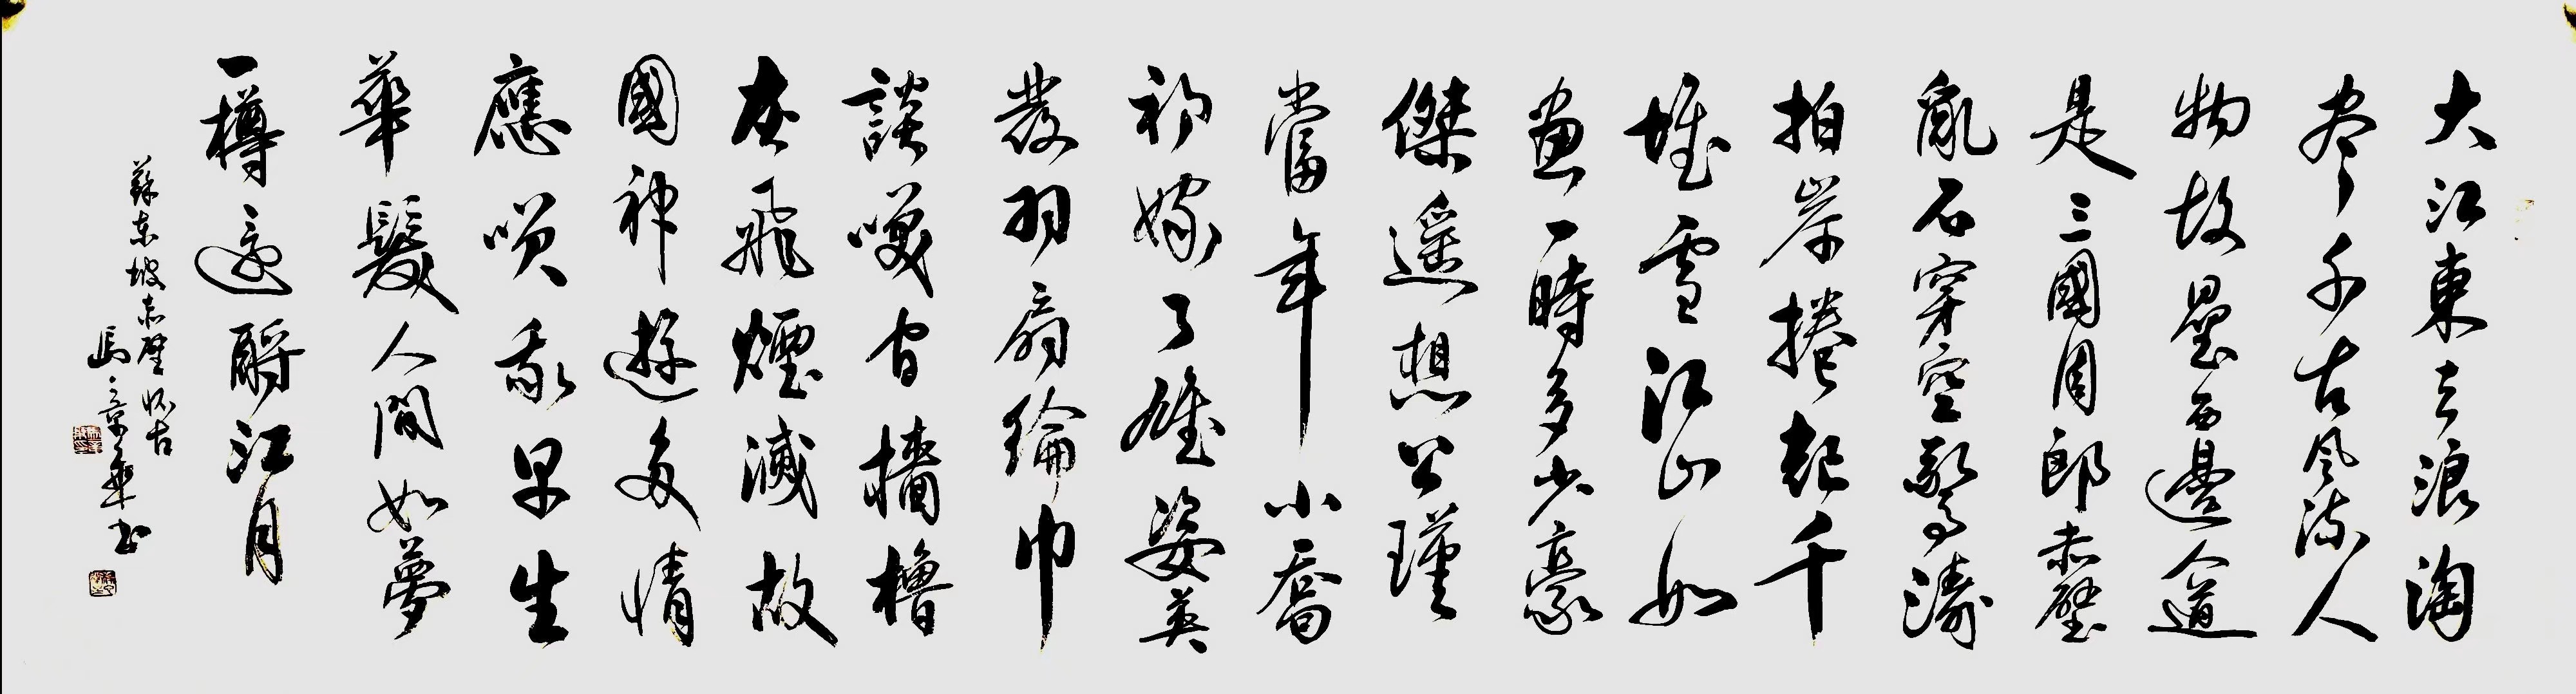 大江東去浪淘
尽千古风流人
物故壘西邊人道
是三國周郎赤壁
亂石穿空驚濤
拍岸捲起千
堆雪江山如
畫一時多少豪
傑遥想公瑾
當年小喬
初嫁了雄姿英
發羽扇綸巾
談笑间檣櫓
灰飛煙滅故
國神遊多情
應笑我早生
華髮人間如夢
一樽還酹江月
蘇东坡赤壁怀古
馬景華书